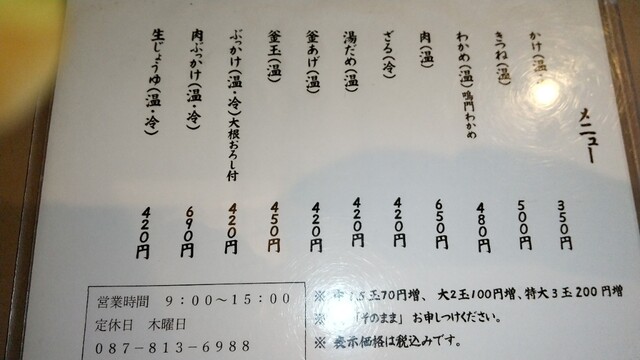 メニュー
かけ(温) 350円
きつね(温) 500円
わかめ(温)鳴門わかめ 480円
肉(温) 650円
ざる(冷) 420円
湯だめ(温) 420円
釜あげ(温) 420円
釜玉(温) 450円
ぶっかけ(温・冷)大根おろし付 420円
肉ぶっかけ(温・冷) 690円
生じょうゆ(温・冷) 420円
※ 中1.5玉70円増、大2玉100円増、特大3玉200円増
※ 「そのまま」お申しつけください。
※ 表示価格は税込みです。
営業時間 9:00~15:00
定休日 木曜日
087-813-6988